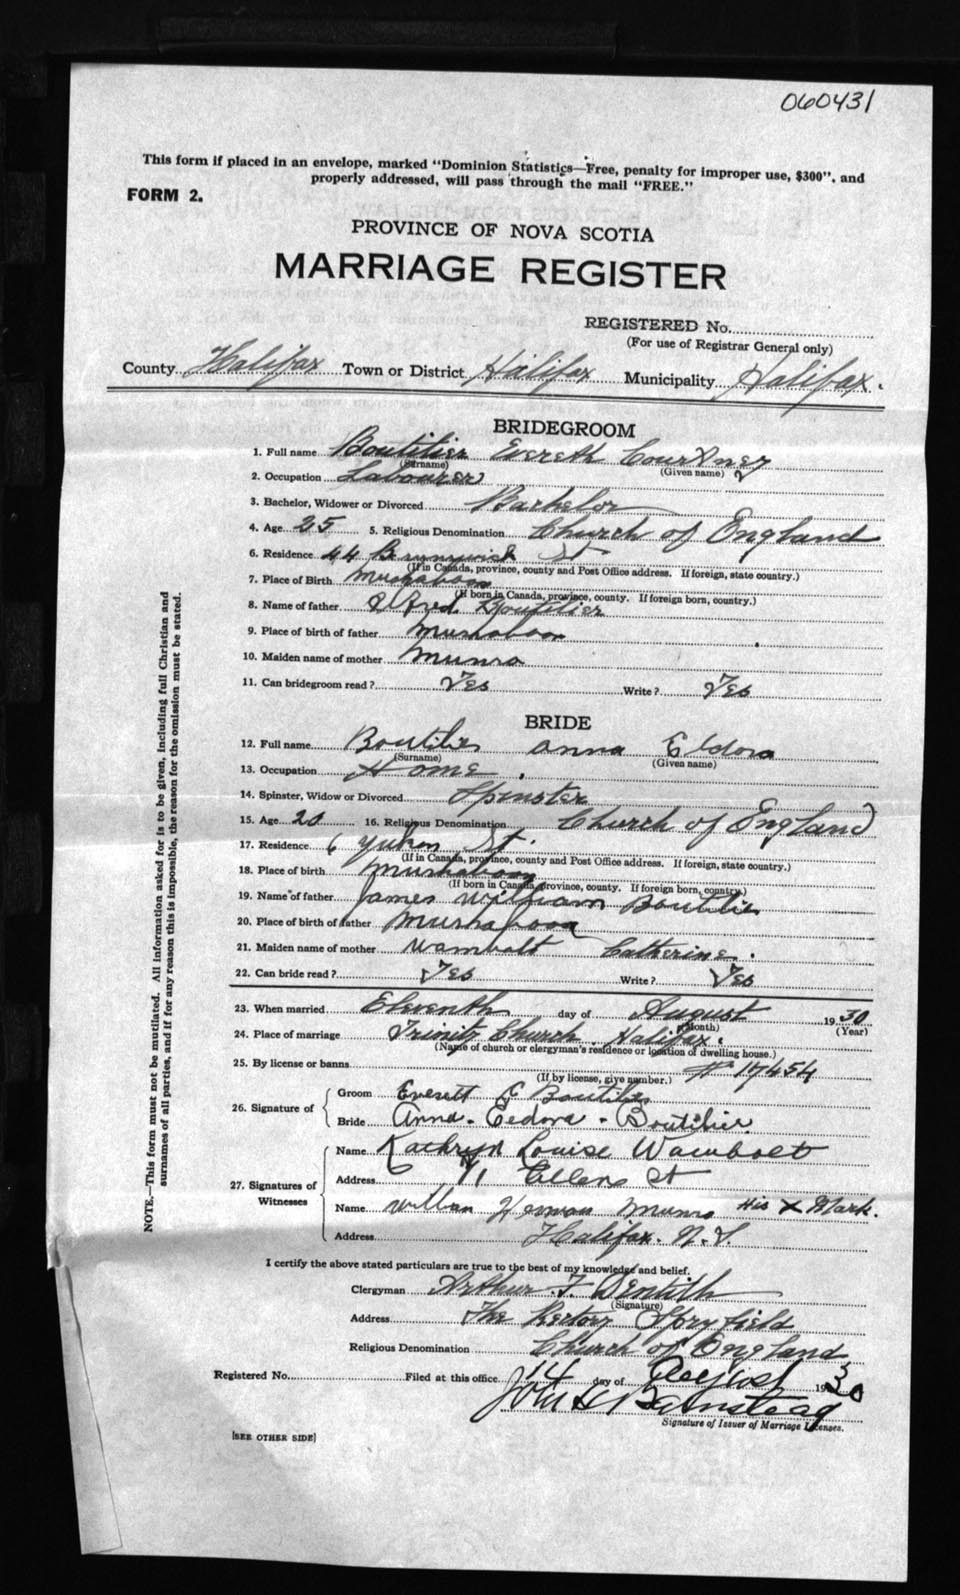 060431
This form if placed in an envelope, marked "Dominion Statistics—Free, penalty for improper use, $300", and
properly addressed, will pass through the mail "FREE."
FORM 2.
PROVINCE OF NOVA SCOTIA
MARRIAGE REGISTER
REGISTERED No.
(For use of Registrar General only)
County Halifax Town or District Halifax Municipality Halifax.
BRIDEGROOM
1. Full name Boutilier Evereth Courtney
(Surname) (Given name)
2. Occupation Labourer
3. Bachelor, Widower or Divorced Bachelor
4. Age 25 5. Religious Denomination Church of England
6. Residence 44 Brunswick St
(If in Canada, province, county and Post Office address. If foreign, state country.)
7. Place of Birth Mushaboom
(If born in Canada, province, county. If foreign born, country.)
8. Name of father Alfred Boutilier
9. Place of birth of father Mushaboom
10. Maiden name of mother Munro
11. Can bridegroom read? Yes Write? Yes
BRIDE
12. Full name Boutilier Anna Eldora
(Surname) (Given name)
13. Occupation Home.
14. Spinster, Widow or Divorced Spinster
15. Age 20 16. Religious Denomination Church of England
17. Residence 6 Yukon St.
(If in Canada, province, county and Post Office address. If foreign, state country.)
18. Place of birth Mushaboom
(If born in Canada, province, county. If foreign born, country.)
19. Name of father James William Boutilier
20. Place of birth of father Mushaboom
21. Maiden name of mother Wambolt Catherine.
22. Can bride read? Yes Write? Yes
23. When married Eleventh day of August 1930
(Month) (Year)
24. Place of marriage Trinity Church. Halifax.
(Name of church or clergyman's residence or location of dwelling house.)
25. By license or banns # 17454
(If by license, give number.)
26. Signature of
Groom Everett C Boutilier
Bride Anna. Eedora. Boutilier.
27. Signatures of Witnesses
Name Kathryn Louise Wambolt
Address 71 Cellens St
Name Herman Munro His X Mark.
Address Halifax. N.S.
I certify the above stated particulars are true to the best of my knowledge and belief.
Clergyman Arthur. F. Dentith
(Signature)
Address The Rectory Spryfield
Religious Denomination Church of England
Registered No. Filed at this office 14 day of August 1930
John H Barnstead
Signature of Issuer of Marriage Licenses.
[SEE OTHER SIDE]
NOTE.—This form must not be mutilated. All information asked for is to be given, including full Christian and
surnames of all parties, and if for any reason this is impossible, the reason for the omission must be stated.